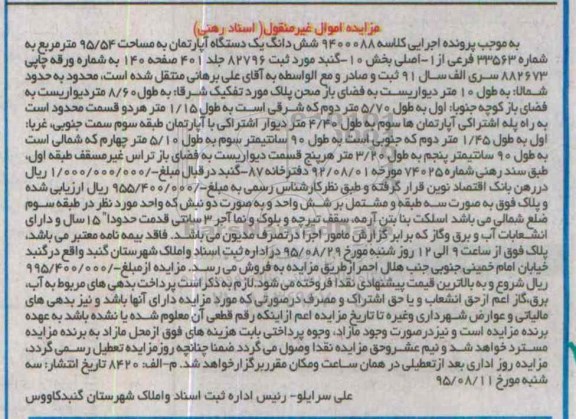 مزایده اموال غیرمنقول( اسناد رهنی)
به موجب پرونده اجرایی کلاسه 9400088 شش دانگ یک دستگاه آپارتمان به مساحت 95/54 مترمربع به
شماره 33563 فرعی از 1-اصلی بخش 10-گنبد مورد ثبت 82796 جلد 401 صفحه 140 به شماره ورقه چاپی
882673 سری الف سال 91 ثبت و صادر و مع الواسطه به آقای علی برهانی منتقل شده است، محدود به حدود
شمالا: به طول 10 متر دیواریست به فضای باز صحن پلاک مورد تفکیک شرقا: به طول 8/60 متردیواریست به
فضای باز کوچه جنوبا: اول به طول 5/70 متر دوم که شرقی است به طول 1/15 متر هردو قسمت محدود است
به راه پله اشتراکی آپارتمان ها سوم به طول 4/40 متر دیوار اشتراکی با آپارتمان طبقه سوم سمت جنوبی، غربا:
اول به طول 1/45 متر دوم که جنوبی است به طول 90 سانتیمتر سوم به طول 5/10 متر چهارم که شمالی است
به طول 90 سانتیمتر پنجم به طول 3/20 متر هرپنج قسمت دیواریست به فضای باز تراس غیرمسقف طبقه اول،
طبق سند رهنی شماره 74025 مورخه 92/08/01 دفترخانه 87-گنبد در قبال مبلغ-/1/000/000/000 ریال
در رهن بانک اقتصاد نوین قرار گرفته و طبق نظر کارشناس رسمی به مبلغ-/955/400/000 ریال ارزیابی شده
و پلاک فوق به صورت سه طبقه و مشتمل بر شش واحد و به صورت دو نبش که واحد مورد نظر در طبقه سوم
ضلع شمالی می باشد اسکلت بنا بتن آرمه، سقف تیرچه و بلوک و نما آجر 3 سانتی قدمت حدودا" 15 سال و دارای
انشعابات آب و برق وگاز که برابر گزارش مامور اجرا در تصرف مدیون می باشند. فاقد بیمه نامه معتبر می باشد،
پلاک فوق از ساعت 9 الی 12 روز شنبه مورخ 95/08/29 در اداره ثبت اسناد واملاک شهرستان گنبد واقع در گنبد
خیابان امام خمینی جنوبی جنب هلال احمر از طریق مزایده به فروش می رسد. مزایده از مبلغ-/995/400/000
ریال شروع و به بالاترین قیمت پیشنهادی نقدا فروخته می شود.لازم به ذکر است پرداخت بدهی های مربوط به آب،
برق،گاز اعم از حق انشعاب و یا حق اشتراک و مصرف در صورتی که مورد مزایده دارای آنها باشد و نیز بدهی های
مالیاتی و عوارض شهرداری وغیره تا تاریخ مزایده اعم از اینکه رقم قطعی آن معلوم شده یا نشده باشد به عهده
برنده مزایده است و نیز در صورت وجود مازاد، وجوه پرداختی بابت هزینه های فوق از محل مازاد به برنده مزایده
مسترد خواهد شد و نیم عشر و حق مزایده نقدا وصول می گردد ضمنا چنانچه روز مزایده تعطیل رسمی گردد،
مزایده روز اداری بعد از تعطیلی در همان ساعت ومکان مقرر برگزار خواهد شد. م-الف: 8420 تاریخ انتشار: سه
شنبه مورخ 95/08/11
علی سرایلو- رئیس اداره ثبت اسناد واملاک شهرستان گنبدکاووس